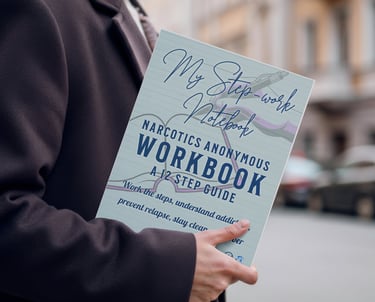 My Step-work
Notebook
NARCOTICS ANONYMOUS
WORKBOOK
A 12 STEP GUIDE
Work the steps, understand addic
prevent relapse, stay clean